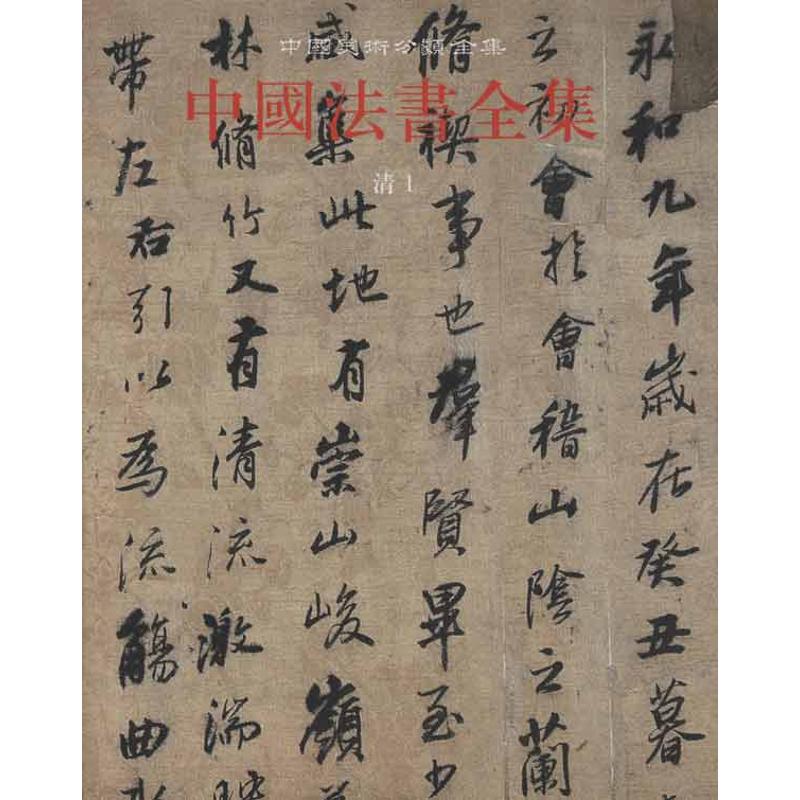 中國美術分類全集
中國法書全集
清 1
永和九年歲在癸丑暮
之初會於會稽山陰之蘭
脩禊事也群賢畢至少
咸集此地有崇山峻嶺
林脩竹又有清流激湍
帶左右引以為流觴曲